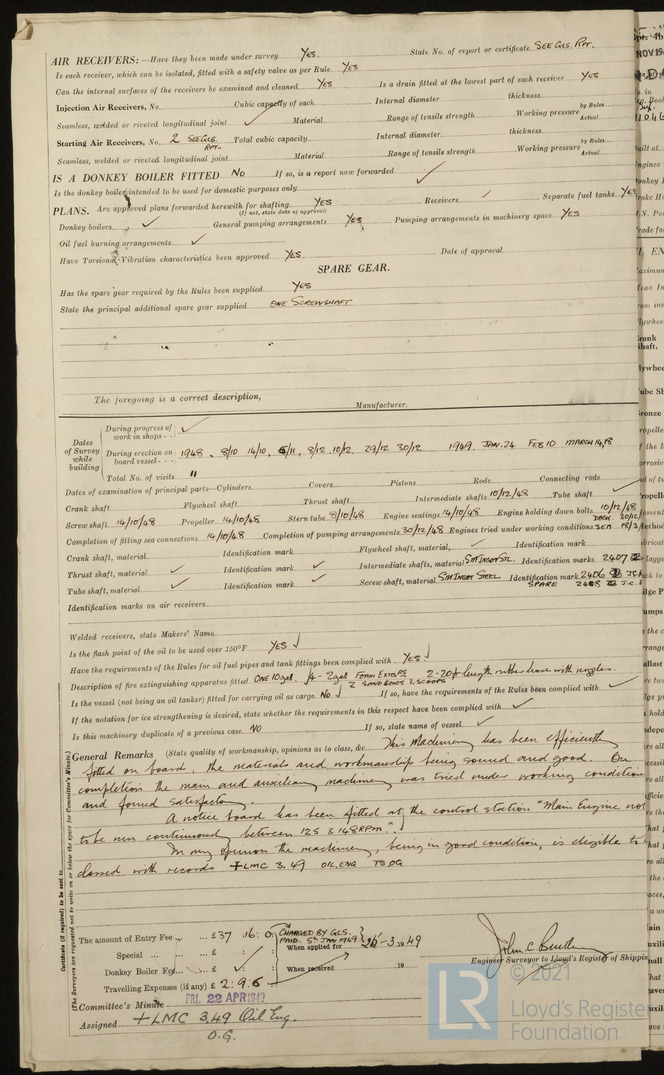 AIR RECEIVERS:—Have they been made under survey YES. State No. of report or certificate SEE GLS. RPT.
Is each receiver, which can be isolated, fitted with a safety valve as per Rule YES
Can the internal surfaces of the receivers be examined and cleaned YES Is a drain fitted at the lowest part of each receiver YES
Injection Air Receivers, No. Cubic capacity of each Internal diameter thickness
Seamless, welded or riveted longitudinal joint ✓ Material Range of tensile strength Working pressure by Rules Actual
Starting Air Receivers, No. 2 SEE GLS. RPT. Total cubic capacity Internal diameter thickness
Seamless, welded or riveted longitudinal joint Material Range of tensile strength Working pressure by Rules Actual
IS A DONKEY BOILER FITTED NO If so, is a report now forwarded ✓
Is the donkey boiler intended to be used for domestic purposes only
PLANS. Are approved plans forwarded herewith for shafting YES Receivers ✓ Separate fuel tanks YES
(If not, state date of approval)
Donkey boilers ✓ General pumping arrangements YES Pumping arrangements in machinery space YES
Oil fuel burning arrangements ✓
Have Torsional Vibration characteristics been approved YES. Date of approval
SPARE GEAR.
Has the spare gear required by the Rules been supplied YES
State the principal additional spare gear supplied ONE SCREWSHAFT
The foregoing is a correct description,
Manufacturer.
Dates of Survey while building
During progress of work in shops - - ✓
During erection on board vessel - - - 1948. 8/10 14/10, 5/11, 8/12 10/12, 29/12 30/12 1949 JAN. 24 FEB 10 MARCH 14, 18
Total No. of visits 11
Dates of examination of principal parts—Cylinders Covers Pistons Rods Connecting rods
Crank shaft Flywheel shaft Thrust shaft Intermediate shafts 10/12/48 Tube shaft ✓
Screw shaft 14/10/48 Propeller 14/10/48 Stern tube 8/10/48 Engine seatings 14/10/48 Engine holding down bolts 10/12/48
Completion of fitting sea connections 14/10/48 Completion of pumping arrangements 30/12/48 Engines tried under working conditions DOCK 30/12 SEA 18/3
Crank shaft, material Identification mark Flywheel shaft, material, ✓ Identification mark
Thrust shaft, material ✓ Identification mark ✓ Intermediate shafts, material SM INGOT STL. Identification marks 2407
Tube shaft, material ✓ Identification mark ✓ Screw shaft, material SM INGOT STEEL Identification mark 2406 J.C.B
SPARE 2408 J.C.B
Identification marks on air receivers
Welded receivers, state Makers' Name
Is the flash point of the oil to be used over 150°F YES ✓
Have the requirements of the Rules for oil fuel pipes and tank fittings been complied with YES. ✓
Description of fire extinguishing apparatus fitted ONE 10 gal. 4 - 2 gal FOAM EXTGRS 2-20ft length rubber hose with nozzles.
2 SAND BOXES 2 SCOOPS
Is the vessel (not being an oil tanker) fitted for carrying oil as cargo NO ✓ If so, have the requirements of the Rules been complied with ✓
If the notation for ice strengthening is desired, state whether the requirements in this respect have been complied with ✓
Is this machinery duplicate of a previous case NO If so, state name of vessel ✓
General Remarks (State quality of workmanship, opinions as to class, &c. This Machinery has been efficiently
fitted on board, the materials and workmanship being sound and good. On
completion the main and auxiliary machinery was tried under working condition
and found satisfactory.
A notice board has been fitted at the control station "Main Engine not
to be run continuously between 125 & 148 RPM". ✓
In my opinion the machinery, being in good condition, is eligible to be
classed with records +LMC 3.49 OIL ENG TS OG
Certificate (if required) to be sent to
(The Surveyors are requested not to write on or below the space for Committee's Minute.)
The amount of Entry Fee ... £37 : 16 : 0 CHARGED BY GLS. PAID. 5th JAN 1949 When applied for 26-3 1949
Special ... £ : :
Donkey Boiler Fee ... £ : : When received 19
Travelling Expenses (if any) £ 2 : 9 : 6
Engineer Surveyor to Lloyd's Register of Shipping
Committee's Minute FRI. 22 APR 1949
Assigned +LMC 3.49 Oil Eng.
O.G.
LR
© 2021
Lloyd's Register
Foundation